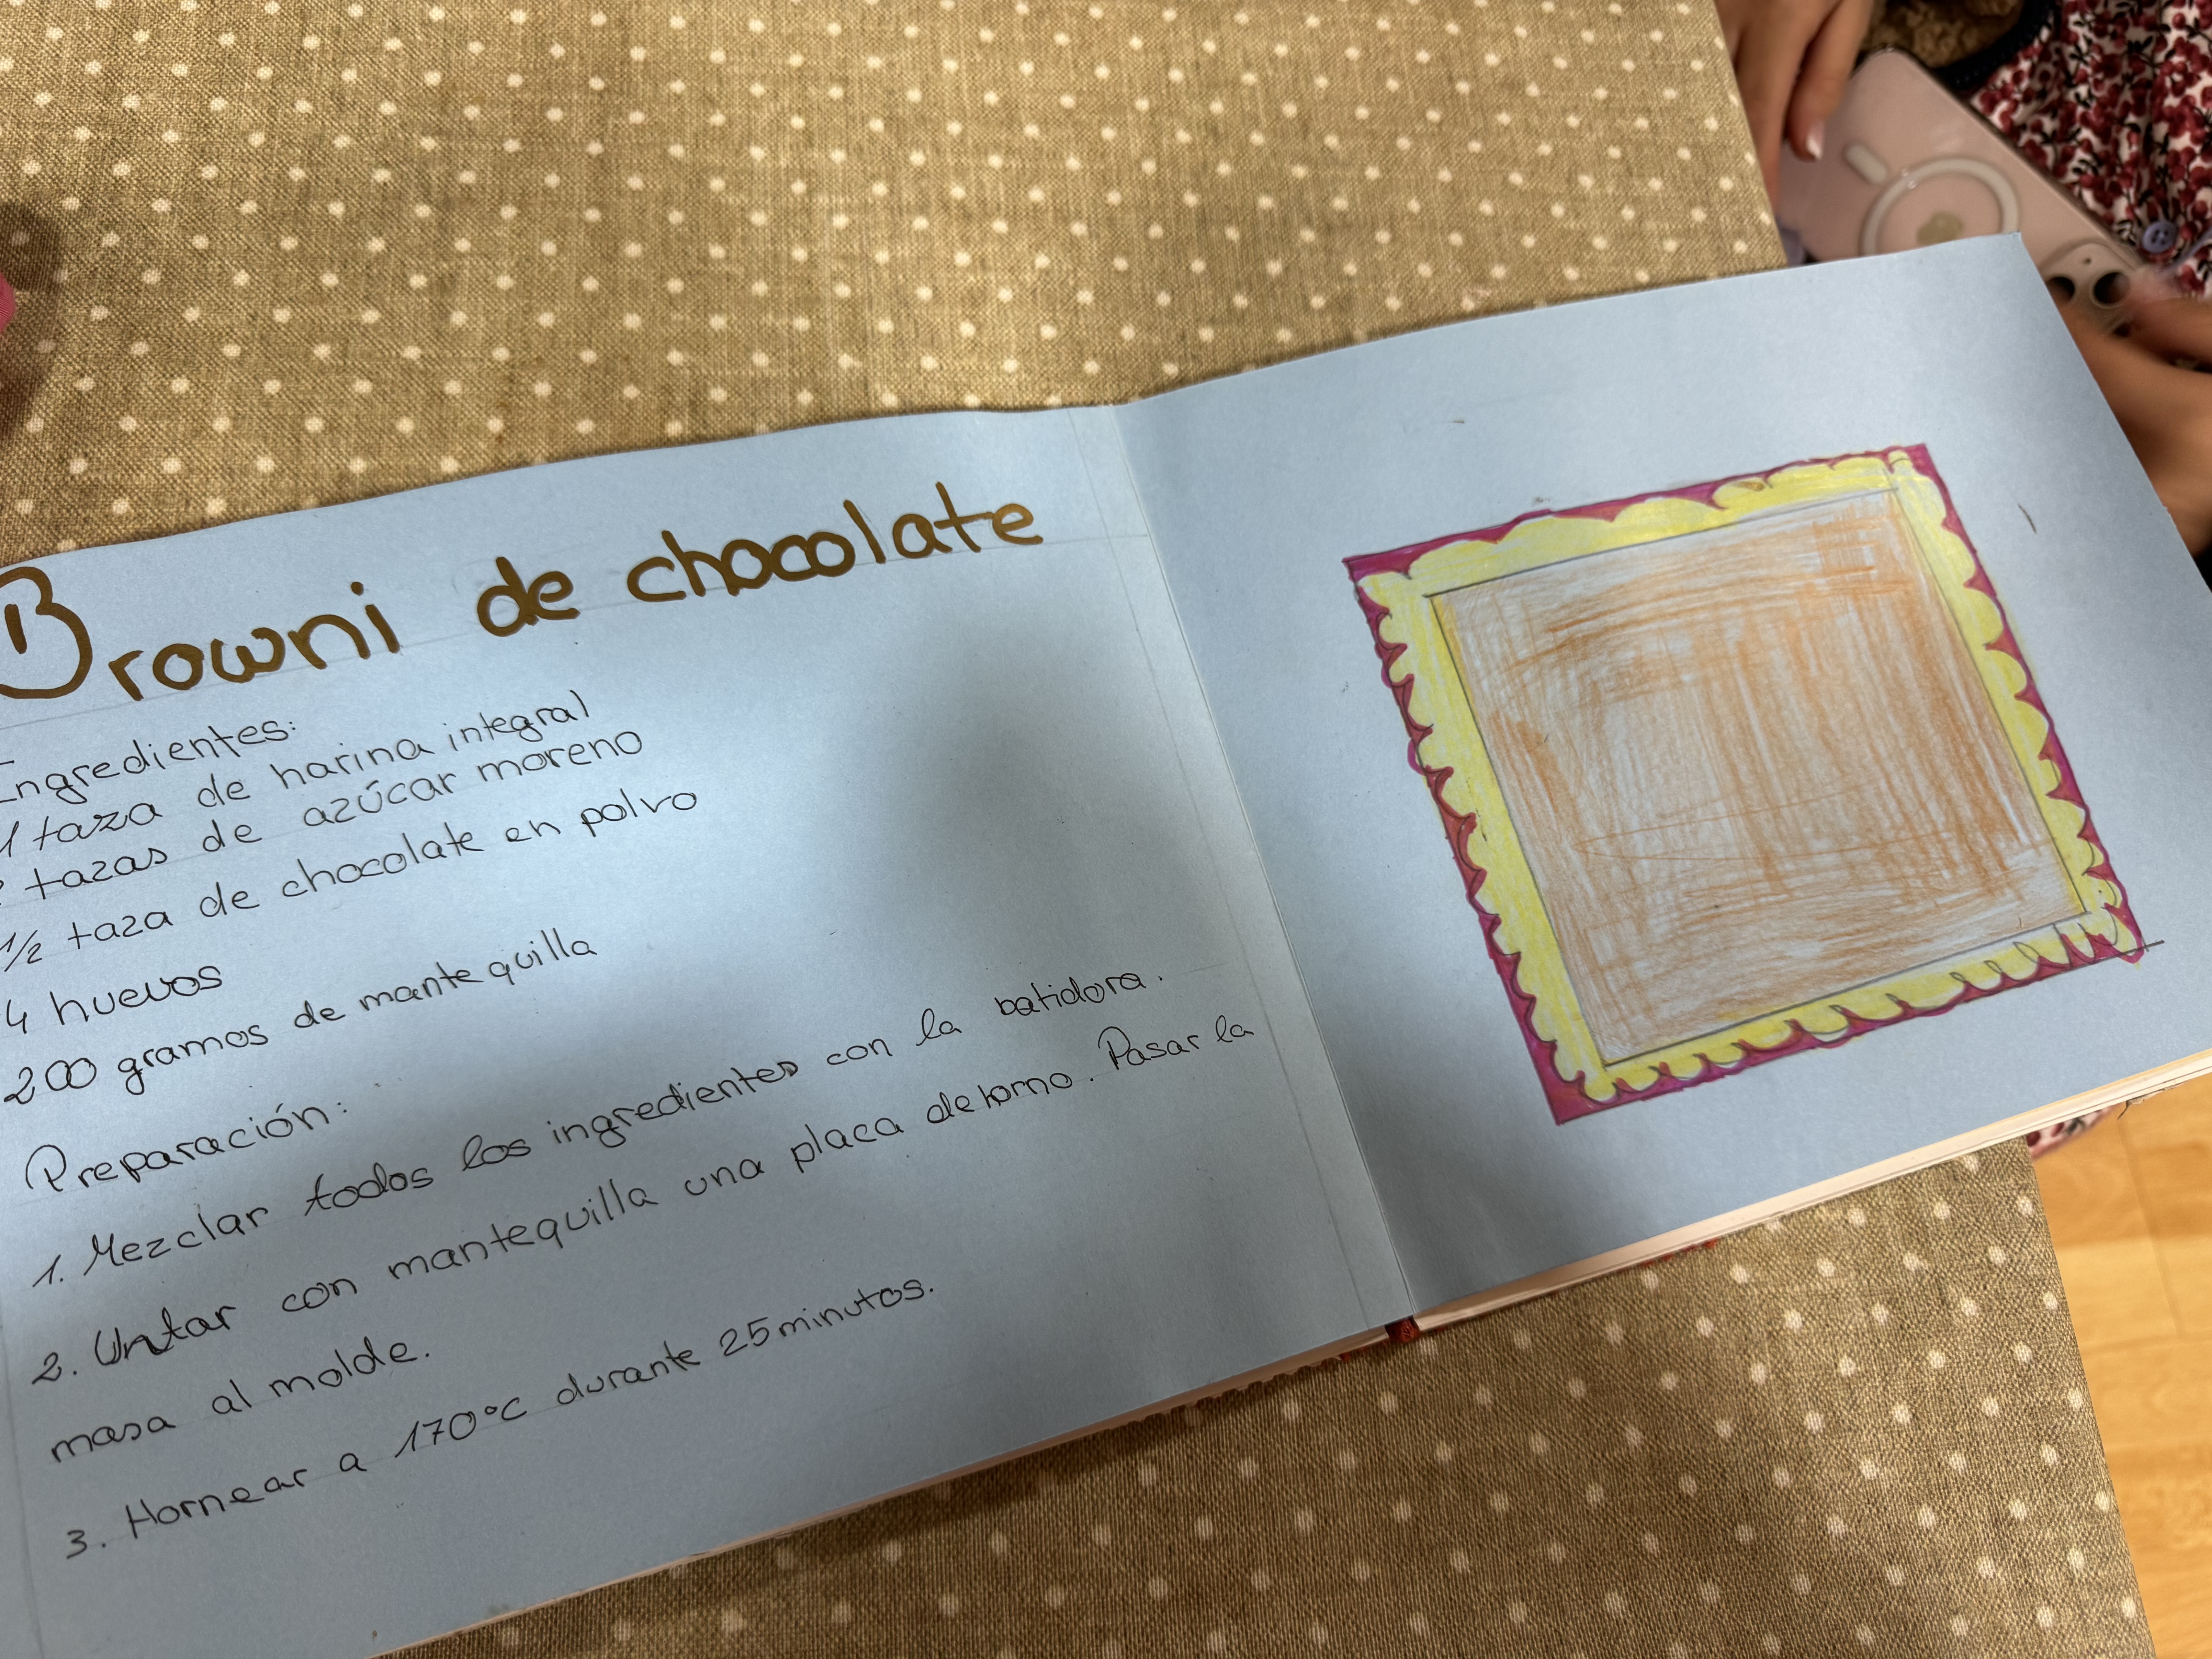 Browni de chocolate
Ingredientes:
1 taza de harina integral
tazas de azúcar moreno
1/2 taza de chocolate en polvo
4 huevos
200 gramos de mantequilla
Preparación:
1. Mezclar todos los ingredientes con la batidora.
2. Untar con mantequilla una placa de horno. Pasar la
masa al molde.
3. Hornear a 170°C durante 25 minutos.